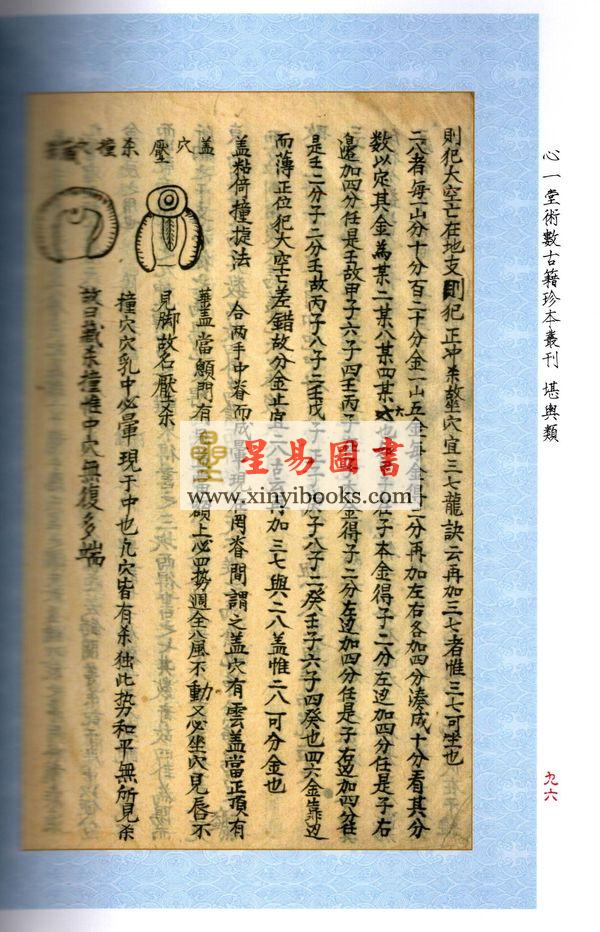 心一堂術數古籍珍本叢刊 堪輿類
九六
則犯大空亡在地支則犯正冲杀故坐穴宜三七龍訣云再加三七者惟三七可坐也
二八者每一山分十分百二十分金一山五金每金二分再加左右各加四分湊成十分看其分
數以定其金為某二某八某四某六也 子本金得子二分左边加四分任是子右
邉加四分任是壬故甲子六子四壬丙子 金得子二分左边加四分任是子右边加四分任
是壬二分子二分壬故丙子八子二壬戊子 子八子二癸壬子六子四癸也四六金靠边
而薄正位犯大空亡差錯故分金止宜二八 再加三七與二八盖惟二八可分金也
盖粘倚撞捷法 合兩手中脊而成暈現在两脊間謂之盖穴有雲盖當正頂有
華盖當顖門有 額上必四势週全八風不動又必坐穴見唇不
見脚故名壓杀
撞穴穴乳中必暈現于中也凡穴皆有杀独此势和平無所見杀
故曰藏杀撞惟中穴無復多端
盖穴壓杀
撞穴
星易圖書
www.xinyibooks.com